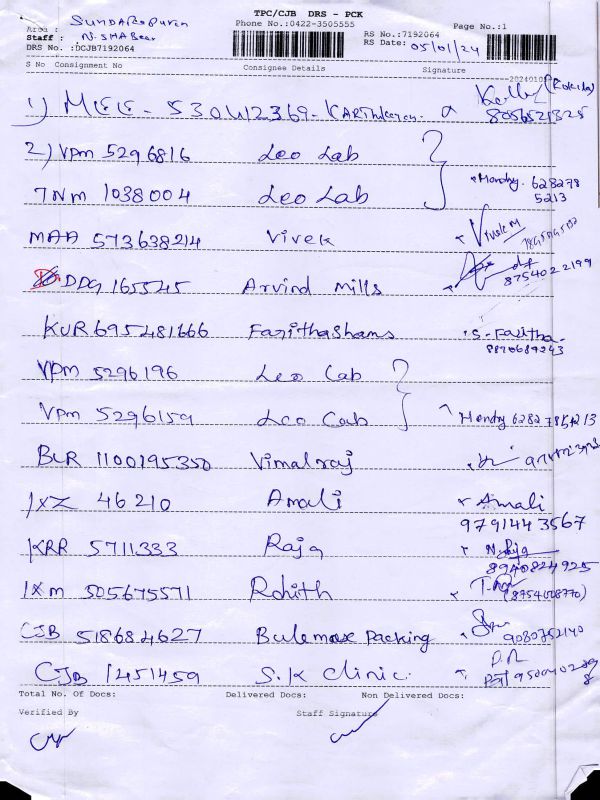 TPC/CJB DRS - PCK
Phone No.:0422-3505555
Page No.:1
Area :
Staff :
DRS No. :DCJB7192064
RS No.:7192064
RS Date: 05/01/24
S No Consignment No Consignee Details Signature
1) MEE - 530412369 - Karthikeyan
8056521325
2) VPM 5296816 Leo Lab
TNM 1038004 Leo Lab
Mondry. 628278
5213
MAA 573638214 Vivek
DDG 165545 Arvind Mills
8754022199
KUR 695481666 Farithashams S. Faritha.
8870689243
VPM 5296196 Leo Lab
VPM 5296159 Leo Lab
BLR 1100195350 Vimalraj
IXZ 46210 Amali Amali
9791443567
KRR 5711333 Raja N. Raja
8940824925
IXM 505675571 Rohith
CJB 518684627 Bulemax Packing
9080752140
CJB 1451459 S.K Clinic.
Total No. Of Docs: Delivered Docs: Non Delivered Docs:
Verified By Staff Signature